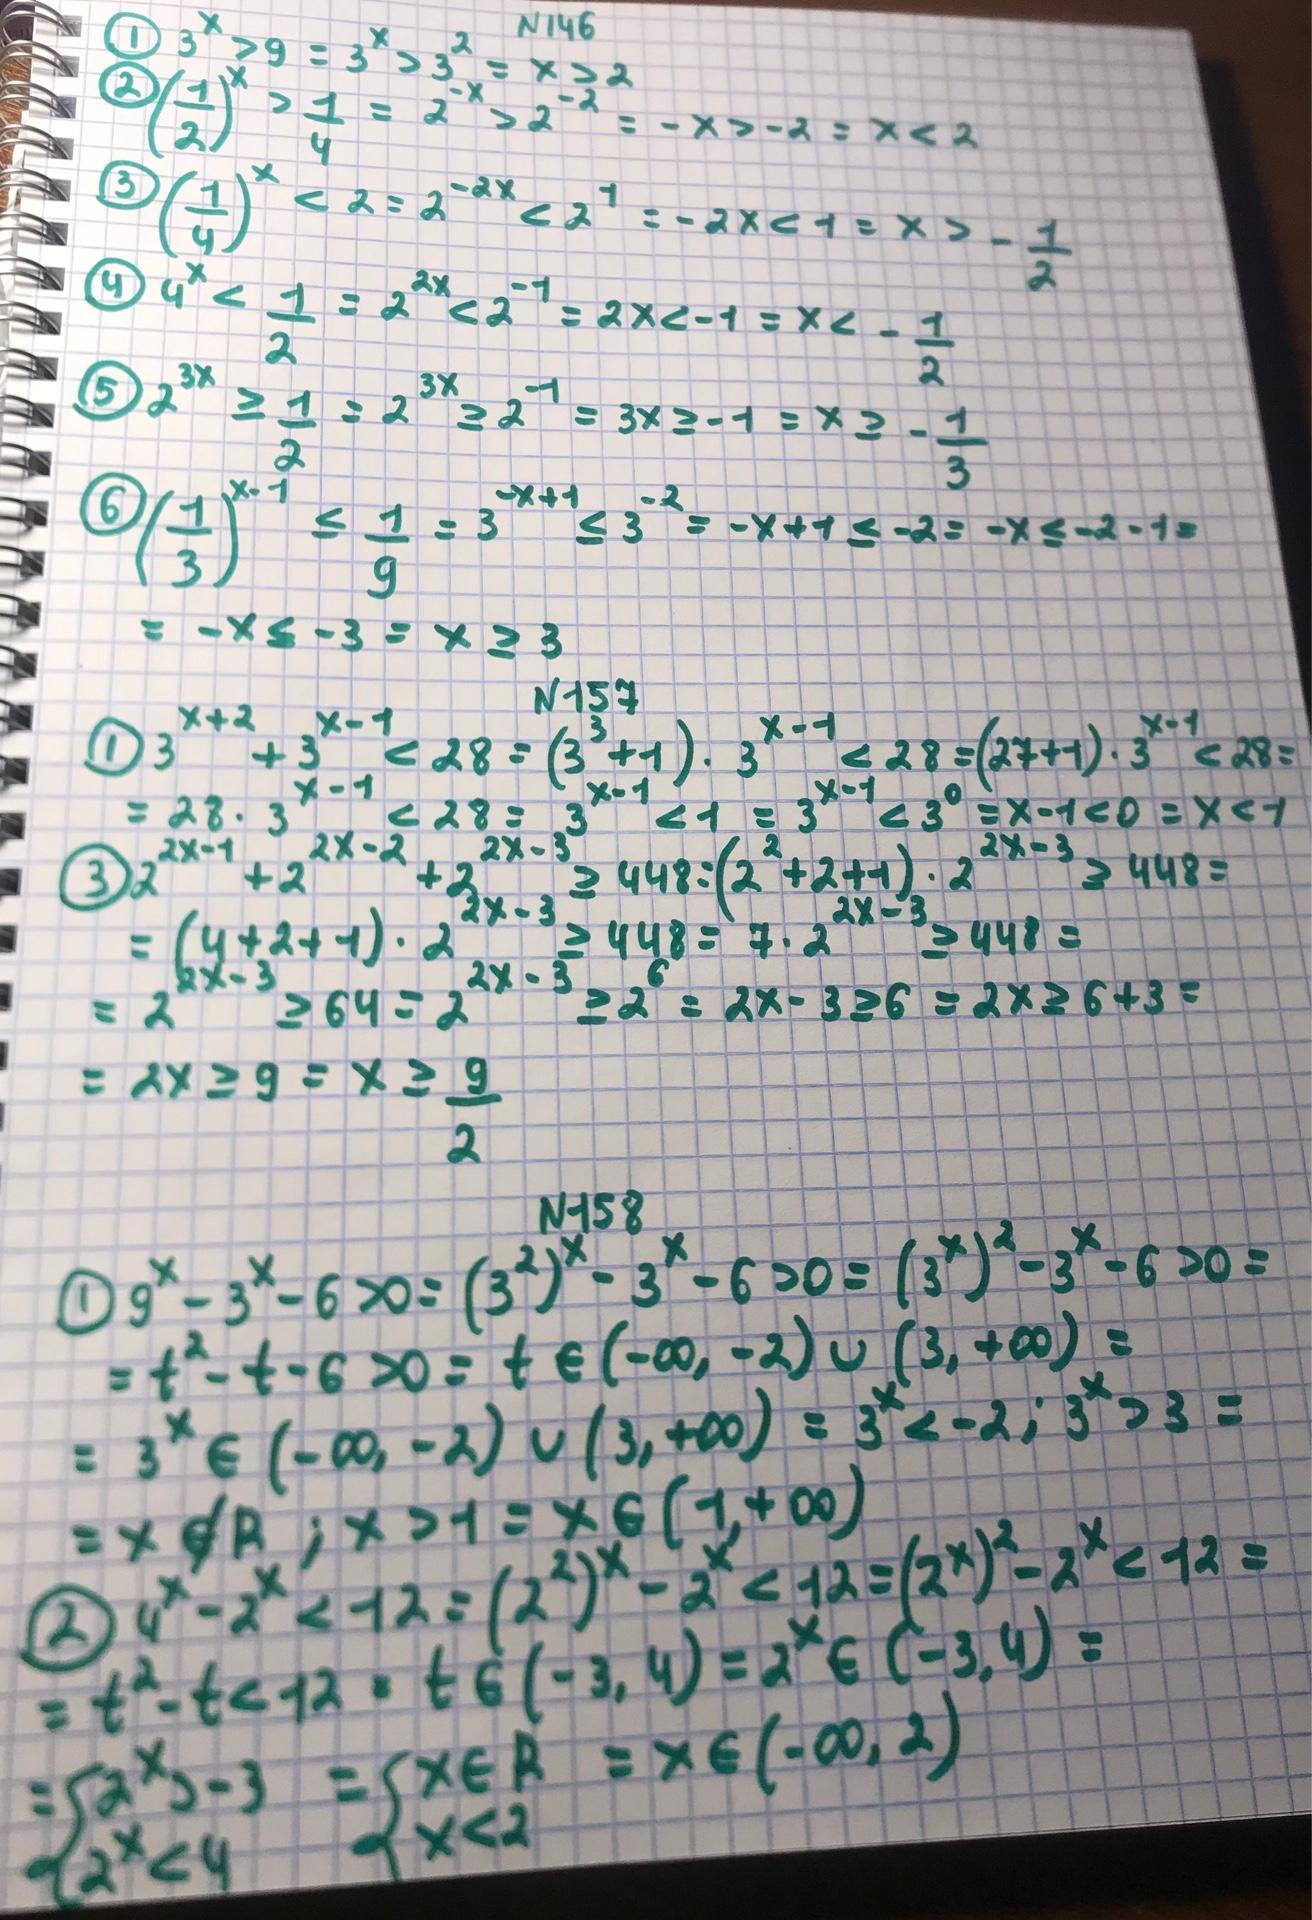 N146
① 3^x > 9 = 3^x > 3^2 = x > 2
② (1/2)^x > 1/4 = 2^-x > 2^-2 = -x > -2 = x < 2
③ (1/4)^x < 2 = 2^-2x < 2^1 = -2x < 1 = x > -1/2
④ 4^x < 1/2 = 2^2x < 2^-1 = 2x < -1 = x < -1/2
⑤ 2^3x ≥ 1/2 = 2^3x ≥ 2^-1 = 3x ≥ -1 = x ≥ -1/3
⑥ (1/3)^x-1 ≤ 1/9 = 3^-x+1 ≤ 3^-2 = -x+1 ≤ -2 = -x ≤ -2-1 =
= -x ≤ -3 = x ≥ 3
N157
① 3^x+2 + 3^x-1 < 28 = (3^3+1) · 3^x-1 < 28 = (27+1) · 3^x-1 < 28 =
= 28 · 3^x-1 < 28 = 3^x-1 < 1 = 3^x-1 < 3^0 = x-1 < 0 = x < 1
③ 2^2x-1 + 2^2x-2 + 2^2x-3 ≥ 448 = (2^2+2+1) · 2^2x-3 ≥ 448 =
= (4+2+1) · 2^2x-3 ≥ 448 = 7 · 2^2x-3 ≥ 448 =
= 2^2x-3 ≥ 64 = 2^2x-3 ≥ 2^6 = 2x-3 ≥ 6 = 2x ≥ 6+3 =
= 2x ≥ 9 = x ≥ 9/2
N158
① 9^x - 3^x - 6 > 0 = (3^2)^x - 3^x - 6 > 0 = (3^x)^2 - 3^x - 6 > 0 =
= t^2 - t - 6 > 0 = t ∈ (-∞, -2) ∪ (3, +∞) =
= 3^x ∈ (-∞, -2) ∪ (3, +∞) = 3^x < -2; 3^x > 3 =
= x ∉ R; x > 1 = x ∈ (1, +∞)
② 4^x - 2^x < 12 = (2^2)^x - 2^x < 12 = (2^x)^2 - 2^x < 12 =
= t^2 - t < 12 = t ∈ (-3, 4) = 2^x ∈ (-3, 4) =
= { 2^x > -3 = { x ∈ R = x ∈ (-∞, 2)
2^x < 4 x < 2